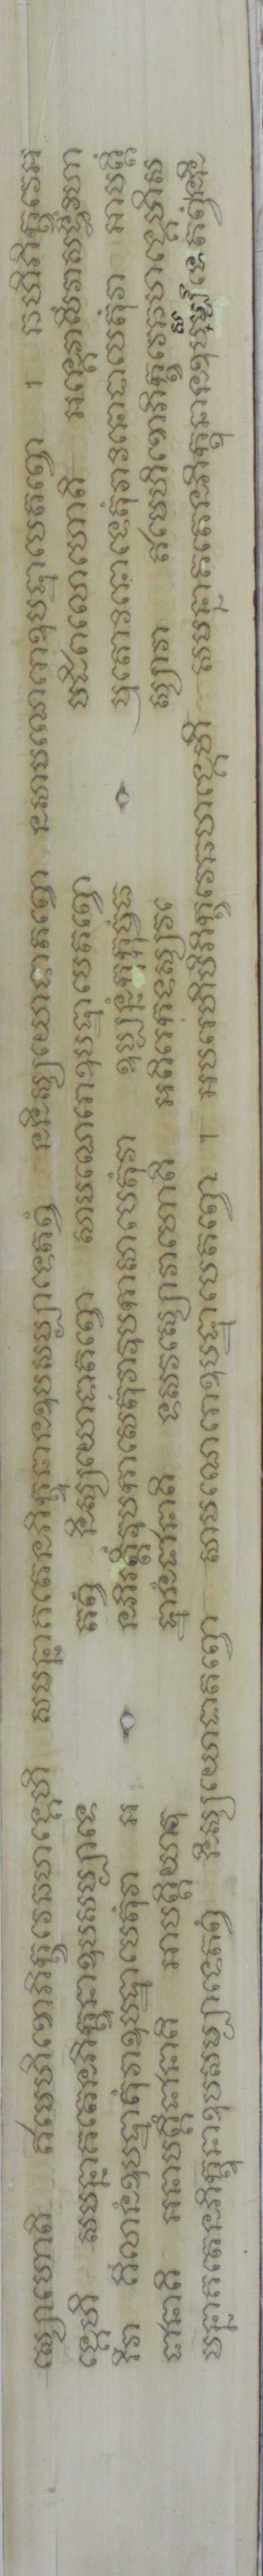 ស្សោហោតិ ឥមេហិខោភិក្ខវេឆហង្គេហិ សមន្នាគតេនភិក្ខុនានឧបសម្បាទេតព្វំ ននិស្សយោទាតព្វោ នសាមណេរោឧបដ្ឋាបេតព្វោ ។ ឆហិភិក្ខវេអ
ង្គេហិ សមន្នាគតេនភិក្ខុនាឧបសម្បាទេ តព្វំ និស្សយោទាតព្វោ សាមណេរោឧបដ្ឋាបេតព្វោ បដិពលោហោតិ អន្តេវាសឹវាសទ្ធិវិហា
រឹវា គិលានំឧបដ្ឋាតុំវាឧបដ្ឋាបេតុំវា អ នភិរតិំវូបកាសេតុំវាវូបកាសាបេតុំវា ឧប្បន្នំកុក្កុច្ចំធ ម្មតោវិនោទេតុំវាវិនោទាបេតុំវា អាបត្តិំ
ជានាតិ អនាបត្តិំជានាតិ អាបត្តិយាវុ ដ្ឋានំជានាតិ ទសវស្សោវាហោតិ អតិរេកទសវ ស្សោវា ឥមេហិខោភិក្ខវេឆហង្គេហិស
មន្នាគតេនភិក្ខុនាឧបសម្បាទេតព្វំ និស្សយោទាតព្វោ សាមណេរោឧបដ្ឋាបេតព្វោ ។ អបរេហិបិភិក្ខវេឆហង្គេហិ សមន្នាគតេនភិក្ខុនានឧបសម្បាទេតព្វំននិ